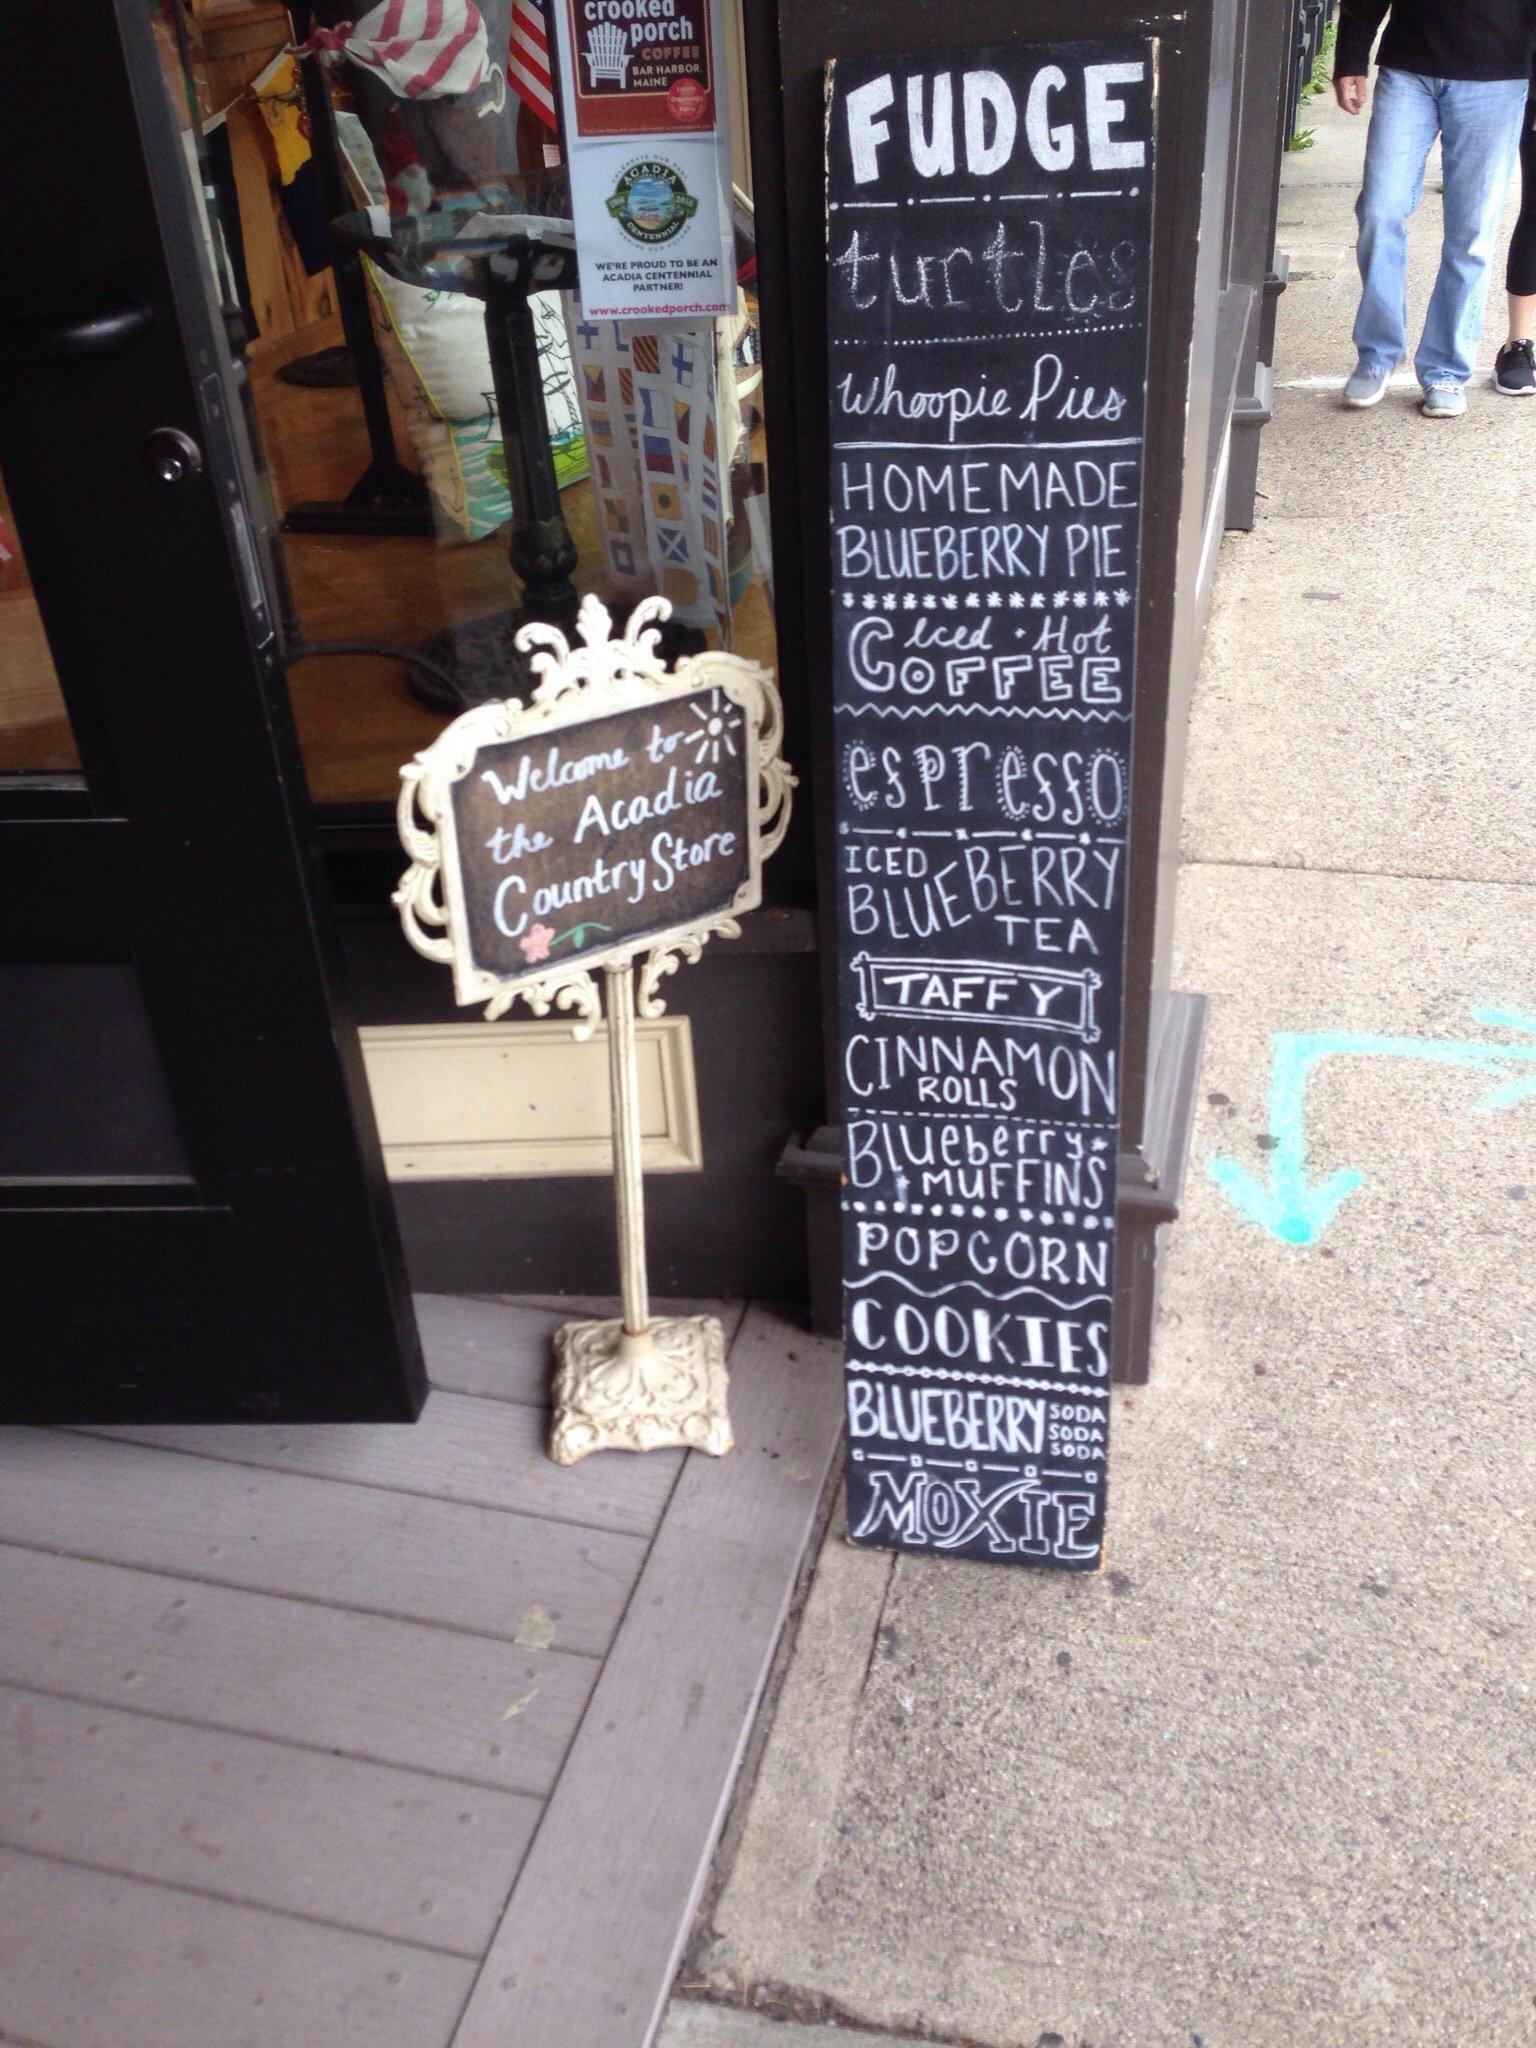 crooked
porch
COFFEE
BAR HARBOR,
MAINE
ACADIA
1916 2016
CENTENNIAL
WE'RE PROUD TO BE AN
ACADIA CENTENNIAL
PARTNER!
www.crookedporch.com
Welcome to
the Acadia
Country Store
FUDGE
turtles
Whoopie Pies
HOMEMADE
BLUEBERRY PIE
Iced • Hot
COFFEE
espresso
ICED
BLUEBERRY
TEA
TAFFY
CINNAMON
ROLLS
Blueberry
MUFFINS
POPCORN
COOKIES
BLUEBERRY SODA
SODA
SODA
MOXIE